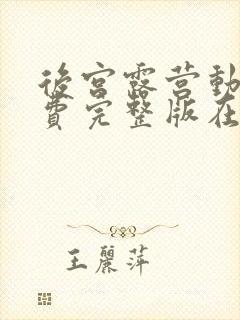 後宮露営動
費完整版在
王麗萍